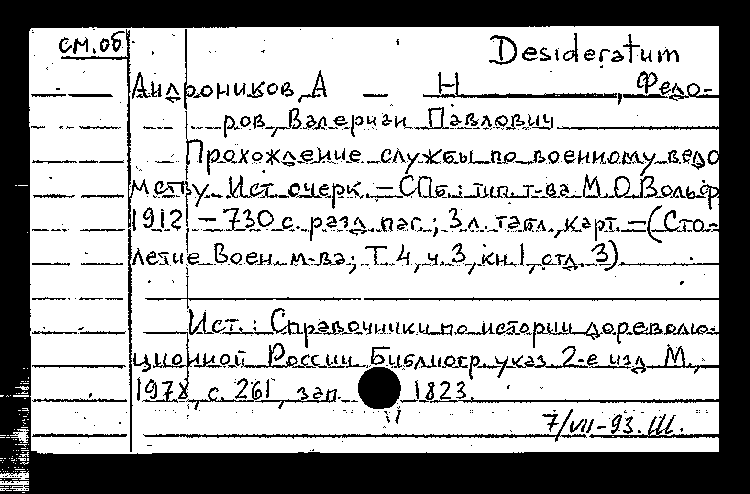 см. об
Desideratum
Андроников, А — Н —, Федо-
ров, Валериан Павлович
Прохождение службы по военному ведо
мству. Ист. очерк. — СПб.: тип. т-ва М.О. Вольф
1912 — 730 с. разд. паг.; 3 л. табл., карт. — (Сто-
летие Воен. м-ва; Т. 4, ч. 3, кн. 1, отд. 3).
Ист.: Справочники по истории дореволю-
ционной России. Библиогр. указ. 2-е изд. М.,
1978, с. 261, зап. 1823.
7/VII-93. Ш.